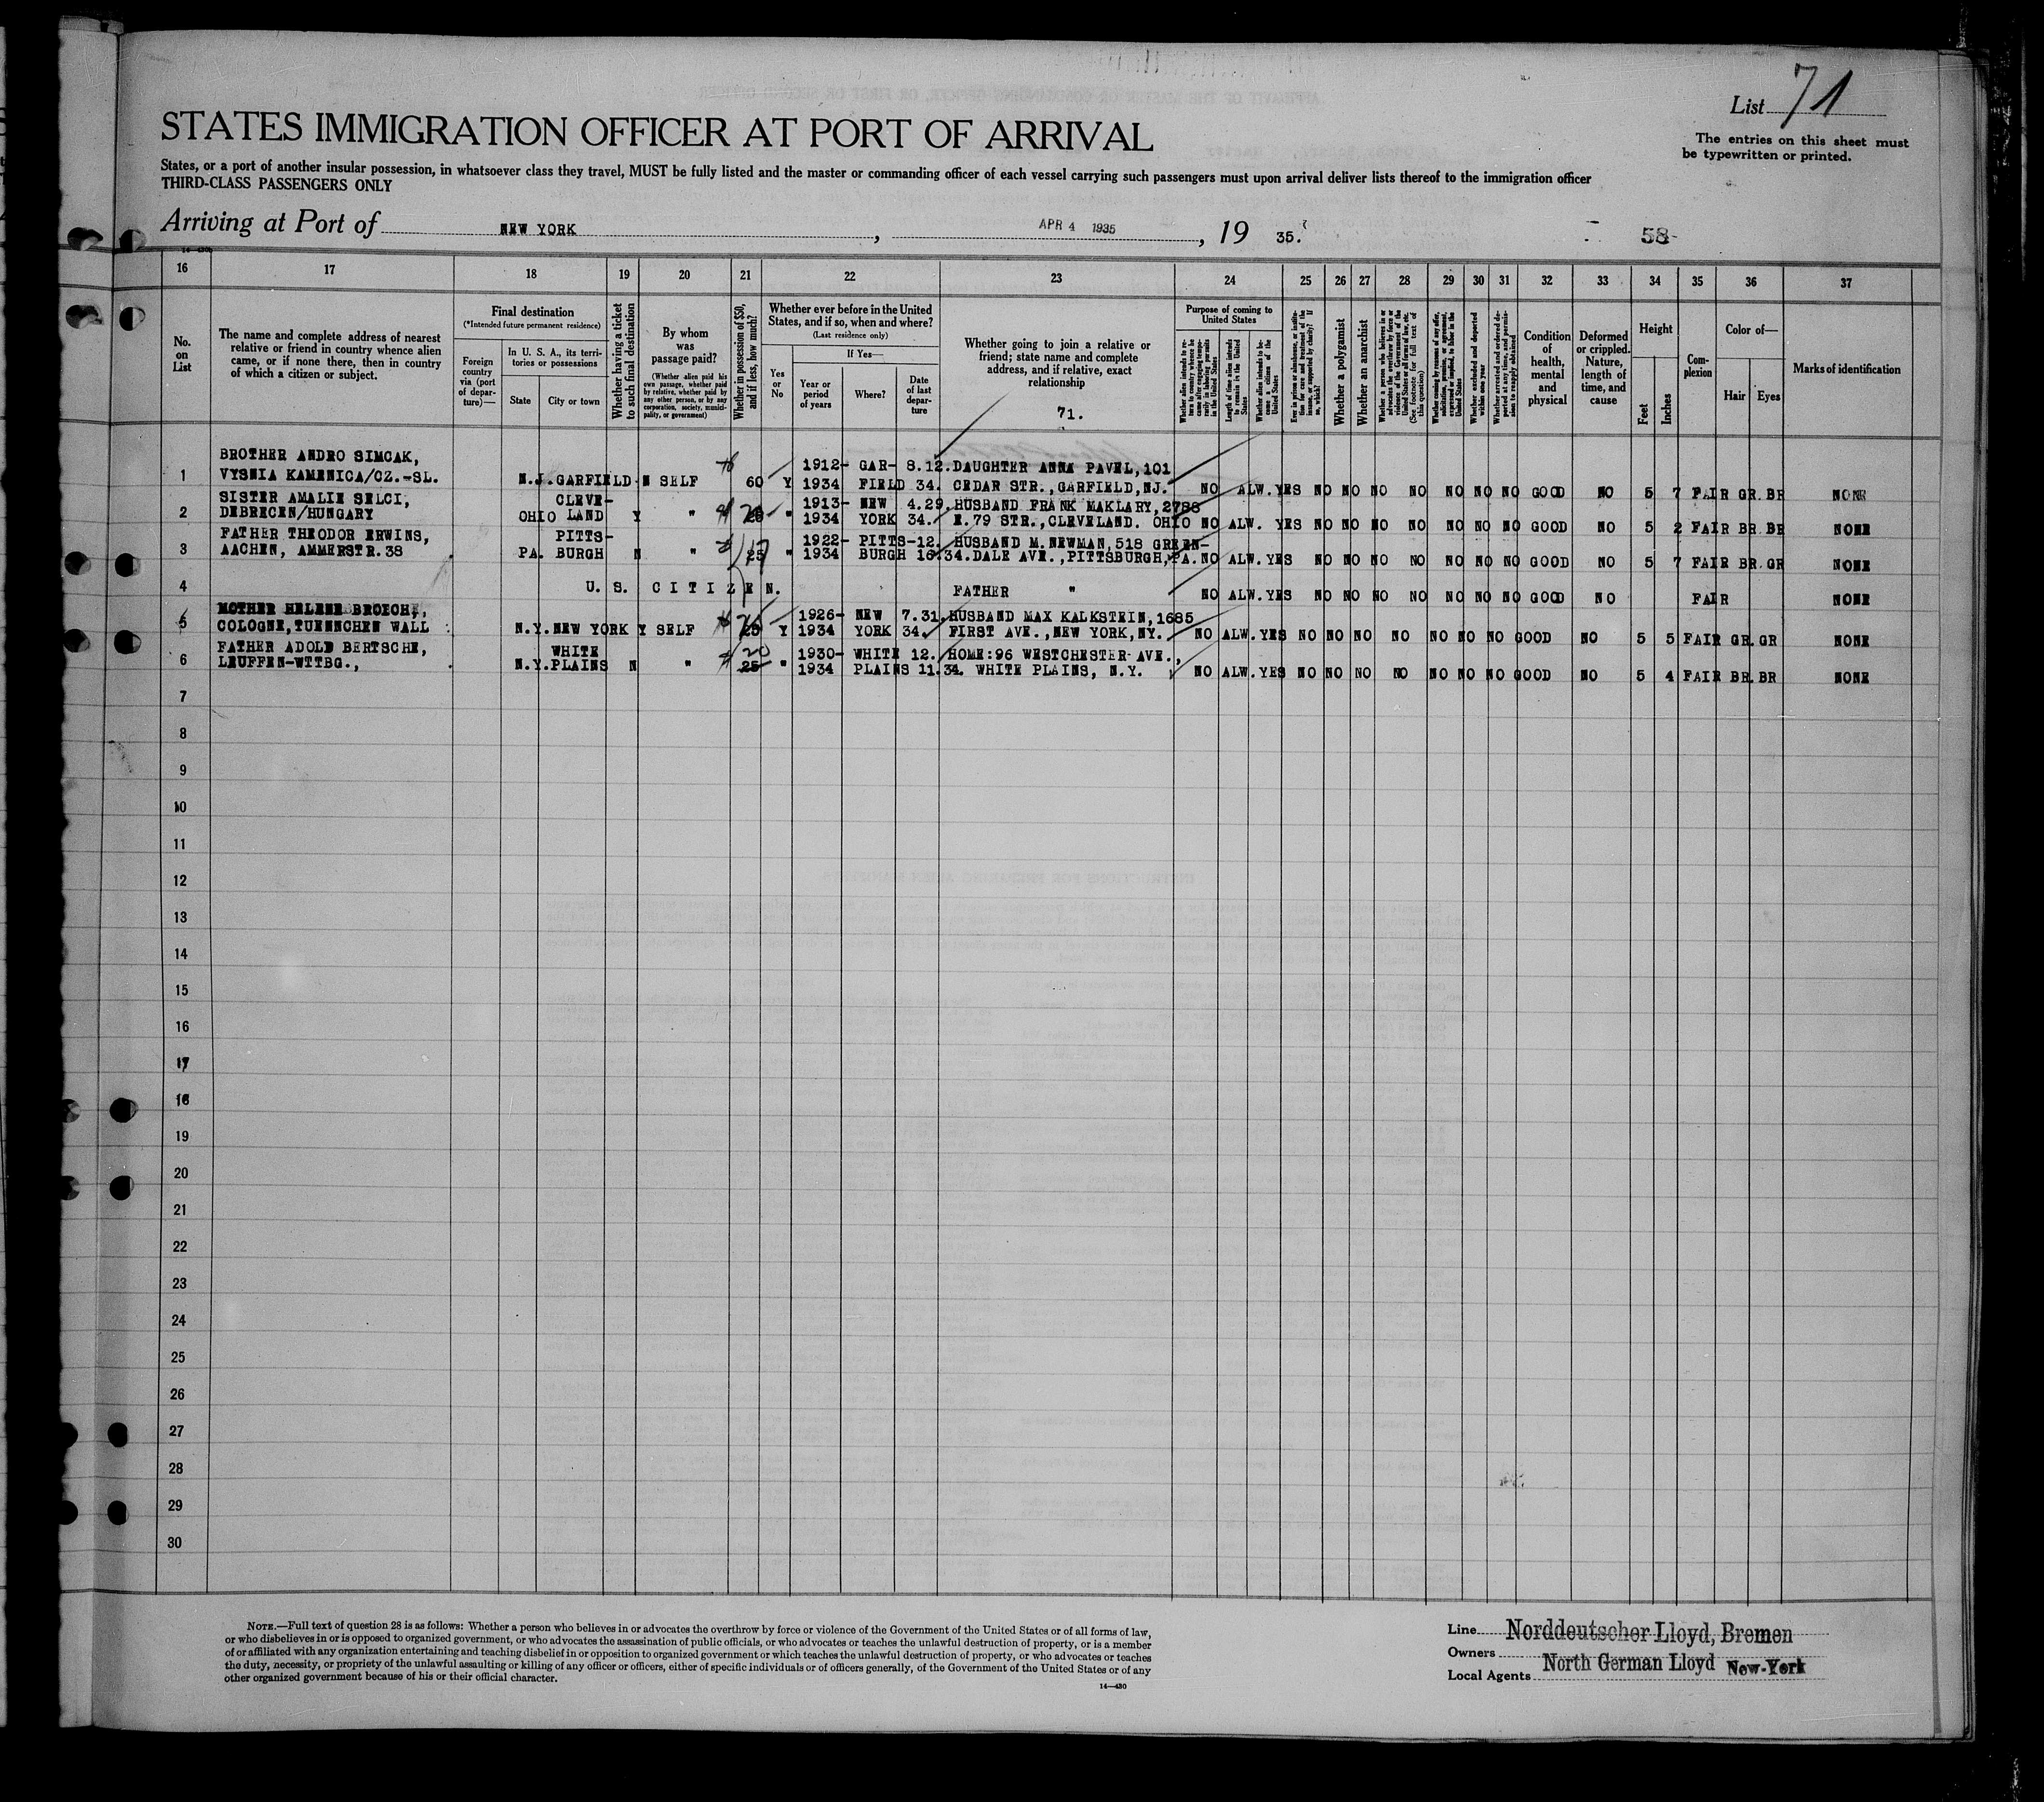 List 71
STATES IMMIGRATION OFFICER AT PORT OF ARRIVAL
The entries on this sheet must
be typewritten or printed.
States, or a port of another insular possession, in whatsoever class they travel, MUST be fully listed and the master or commanding officer of each vessel carrying such passengers must upon arrival deliver lists thereof to the immigration officer
THIRD-CLASS PASSENGERS ONLY
Arriving at Port of NEW YORK, APR 4 1935, 19 35.
58
16 17 18 19 20 21 22 23 24 25 26 27 28 29 30 31 32 33 34 35 36 37
No. on List
The name and complete address of nearest relative or friend in country whence alien came, or if none there, then in country of which a citizen or subject.
Final destination
(*Intended future permanent residence)
Foreign country via (port of departure)—
In U. S. A., its territories or possessions
State
City or town
Whether having a ticket to such final destination
By whom was passage paid?
(Whether alien paid his own passage, whether paid by relative, whether paid by any other person, or by any corporation, society, municipality, or government)
Whether in possession of $50, and if less, how much?
Whether ever before in the United States, and if so, when and where?
(Last residence only)
Yes or No
If Yes—
Year or period of years
Where?
Date of last departure
Whether going to join a relative or friend; state name and complete address, and if relative, exact relationship
71.
Purpose of coming to United States
Whether alien intends to return to country whence he came after engaging temporarily in laboring pursuits in the United States
Length of time alien intends to remain in the United States
Whether alien intends to become a citizen of the United States
Ever in prison or almshouse, or institution for care and treatment of the insane, or supported by charity? If so, which?
Whether a polygamist
Whether an anarchist
Whether a person who believes in or advocates the overthrow by force or violence of the Government of the United States or all forms of law, etc. (See footnote for full text of this question)
Whether coming by reasons of any offer, solicitation, promise, or agreement, expressed or implied, to labor in the United States
Whether excluded and deported within one year
Whether arrested and ordered deported at any time, and permission to reapply obtained
Condition of health, mental and physical
Deformed or crippled. Nature, length of time, and cause
Height
Feet
Inches
Complexion
Color of—
Hair
Eyes
Marks of identification
BROTHER ANDRO SIMCAK, 1912- GAR- 8.12. DAUGHTER ANNA PAVEL, 101
1 VYSNIA KAMENICA/CZ.-SL. N.J. GARFIELD N SELF 60 Y 1934 FIELD 34. CEDAR STR., GARFIELD, NJ. NO ALW. YES NO NO NO NO NO NO NO GOOD NO 5 7 FAIR GR. BR NONE
SISTER AMALIE SELCI, CLEVE- 1913- NEW 4.29. HUSBAND FRANK MAKLARY, 2788
2 DEBRECEN/HUNGARY OHIO LAND Y " 1934 YORK 34. E. 79 STR., CLEVELAND. OHIO NO ALW. YES NO NO NO NO NO NO NO GOOD NO 5 2 FAIR BR. BR NONE
FATHER THEODOR ERWINS, PITTS- 1922- PITTS- 12. HUSBAND M. NEWMAN, 518 GREEN-
3 AACHEN, AMMERSTR. 38 PA. BURGH N " 25 17 " 1934 BURGH 16.34. DALE AVE., PITTSBURGH, PA. NO ALW. YES NO NO NO NO NO NO NO GOOD NO 5 7 FAIR BR. GR NONE
4 U. S. CITIZEN. FATHER " NO ALW. YES NO NO NO NO NO NO NO GOOD NO FAIR NONE
MOTHER HELENE BROECHE, 1926- NEW 7.31. HUSBAND MAX KALKSTEIN, 1685
5 COLOGNE, TUENNCHEN WALL N.Y. NEW YORK Y SELF Y 1934 YORK 34. FIRST AVE., NEW YORK, NY. NO ALW. YES NO NO NO NO NO NO NO GOOD NO 5 5 FAIR GR. GR NONE
FATHER ADOLF BERTSCHE, WHITE 1930- WHITE 12. HOME: 96 WESTCHESTER AVE.,
6 LEUFFEN-WTTBG., N.Y. PLAINS N " 25 20 " 1934 PLAINS 11.34. WHITE PLAINS, N.Y. NO ALW. YES NO NO NO NO NO NO NO GOOD NO 5 4 FAIR BR. BR NONE
7
8
9
10
11
12
13
14
15
16
17
18
19
20
21
22
23
24
25
26
27
28
29
30
NOTE.—Full text of question 28 is as follows: Whether a person who believes in or advocates the overthrow by force or violence of the Government of the United States or of all forms of law,
or who disbelieves in or is opposed to organized government, or who advocates the assassination of public officials, or who advocates or teaches the unlawful destruction of property, or is a member
of or affiliated with any organization entertaining and teaching disbelief in or opposition to organized government or which teaches the unlawful destruction of property, or who advocates or teaches
the duty, necessity, or propriety of the unlawful assaulting or killing of any officer or officers, either of specific individuals or of officers generally, of the Government of the United States or of any
other organized government because of his or their official character.
14—430
Line Norddeutscher Lloyd, Bremen
Owners
Local Agents North German Lloyd New-York